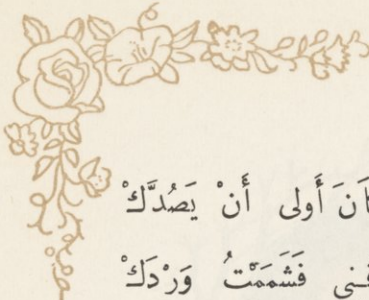 كَانَ أَولى أَنْ يَصُدَّكْ
فَشَمَمْتُ وَرْدَكْ